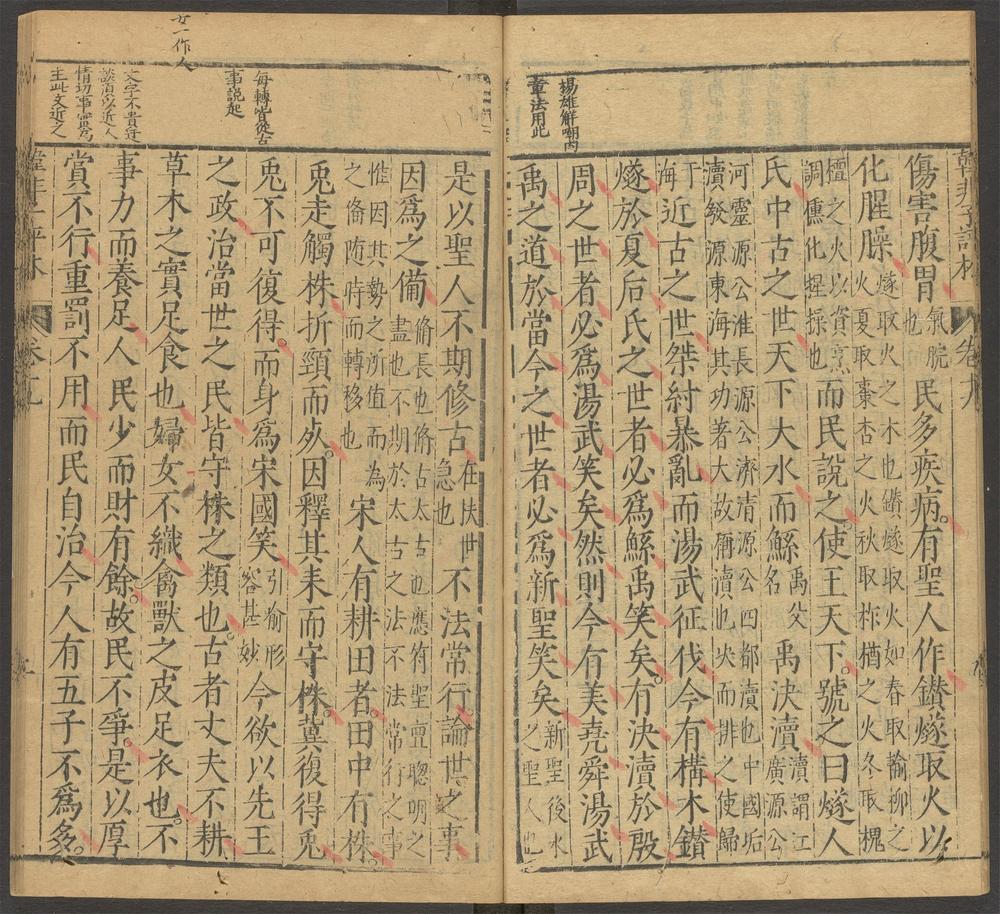 揚雄解嘲内
章法用此
傷害腹胃氣脘也民多疾病有聖人作鑚燧取火以
化腥臊燧取火之木也鑚燧取火如春取榆柳之火夏取棗杏之火秋取柞楢之火冬取槐
檀之火以資烹調僡化腥操也而民說之使王天下號之曰燧人
氏中古之世天下大水而鯀禹父名禹決瀆瀆謂江廣源公
河靈源公淮長源公濟清源公四都瀆也中國垢瀆發源東海其功著大故稱瀆也决而排之使歸
于海近古之世桀紂暴亂而湯武征伐今有構木鑚
燧於夏后氏之世者必爲鯀禹笑矣有決瀆於殷
周之世者必爲湯武笑矣然則今有美堯舜湯武
禹之道於當今之世者必爲新聖笑矣新聖後水之聖人也
女一作人
每轉皆從古
事説起
文字不貴迂
談須以近人
情切事實爲
主此文近之
是以聖人不期修古在扶世急也不法常行論世之事
因爲之備脩長也脩古太古也應符聖亶聰明之盡也不期於太古之法不法常行之事
惟因其勢之所值而爲之俻随時而轉移也宋人有耕田者田中有株
兎走觸株折頸而死因釋其耒而守株冀復得兎
兎不可復得而身爲宋國笑引喻形容甚妙今欲以先王
之政治當世之民皆守株之類也古者丈夫不耕
草木之實足食也婦女不織禽獸之皮足衣也不
事力而養足人民少而財有餘故民不爭是以厚
賞不行重罰不用而民自治今人有五子不爲多